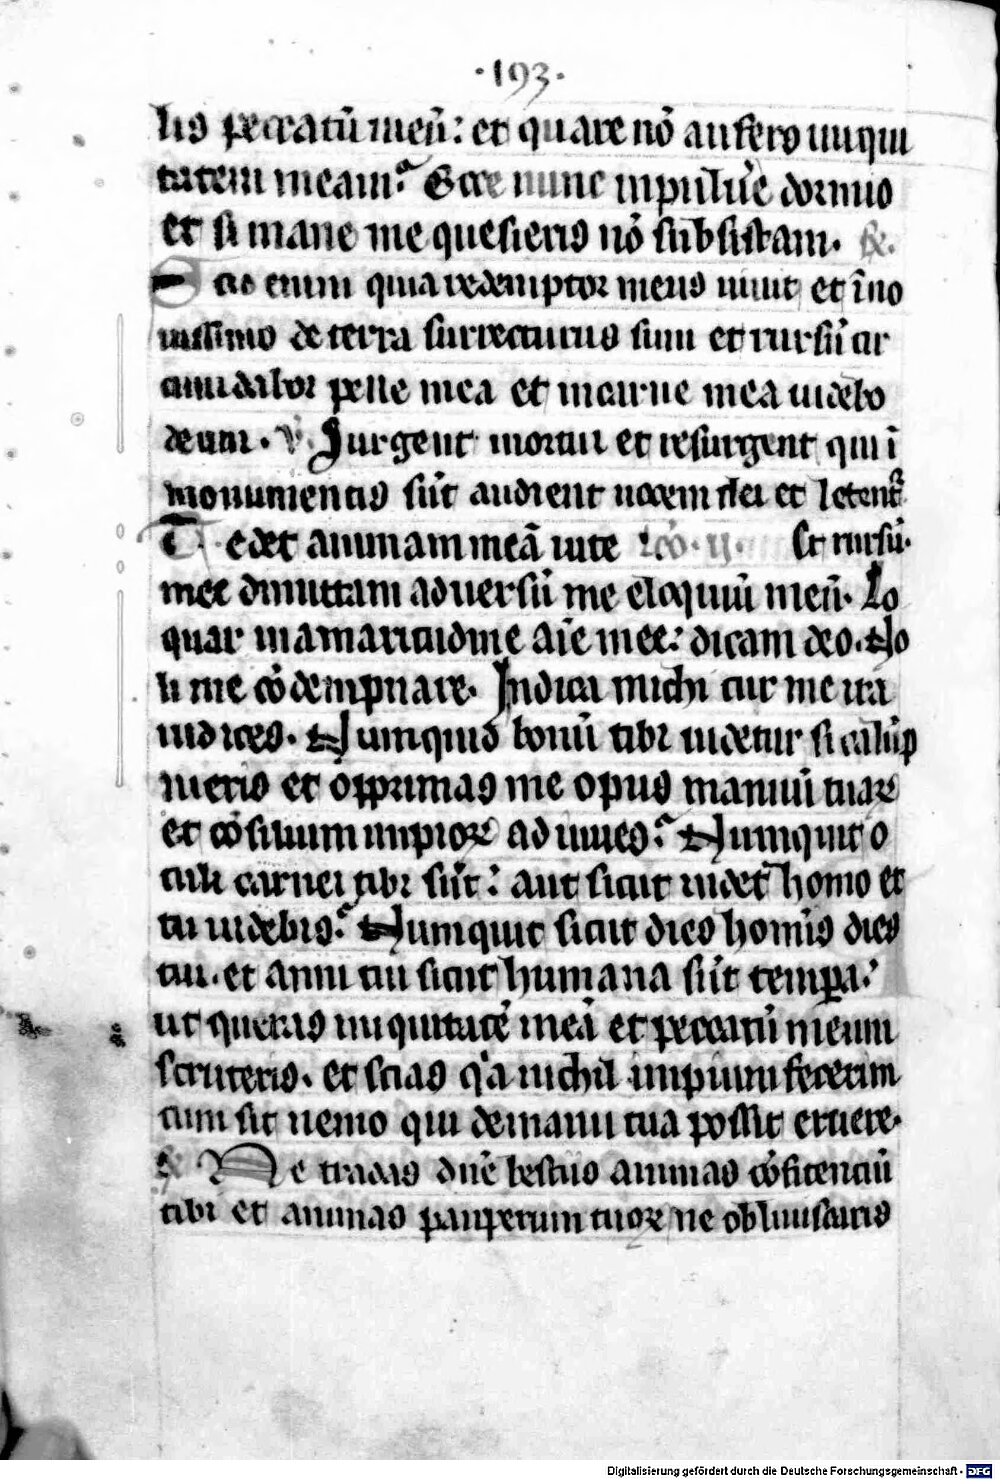 ·193·
lis peccatū meū: et quare nō aufers iniqui
tatem meam? Ecce nunc in puluē dormio
et si mane me quesieris nō subsistam. R.
Scio enim quia redemptor meus uiuit et ī no
uissimo de terra surrecturus sum et rursū cir
cumdabor pelle mea et in carne mea uidebo
deum. V. Surgent mortui et resurgent qui ī
monumentis sūt audient uocem dei et letent
Tedet animam meā uite leō. ij. Et rursū.
mee dimittam aduersū me eloquiū meū. Lo
quar in amaritudine aīe mee: dicam deo. No
li me cōdempnare. Indica michi cur me ita
iudices. Numquid bonū tibi uidetur si calūp
nieris et opprimas me opus manuū tuaꝝ
et cōsilium impioꝝ adiuues? Numquit o
culi carnei tibi sūt: aut sicut uidet homo et
tu uidebis? Numquit sicut dies homīs dies
tui. et anni tui sicut humana sūt tempa:
ut queras iniquitatē meā et peccatū meum
scruteris. et scias q'a nichil impium fecerim
cum sit nemo qui de manu tua possit eruere.
R Ne tradas dn̄e bestiis animas cōfitenciū
tibi et animas pauperum tuoꝝ ne obliuiscaris
Digitalisierung gefördert durch die Deutsche Forschungsgemeinschaft - DFG